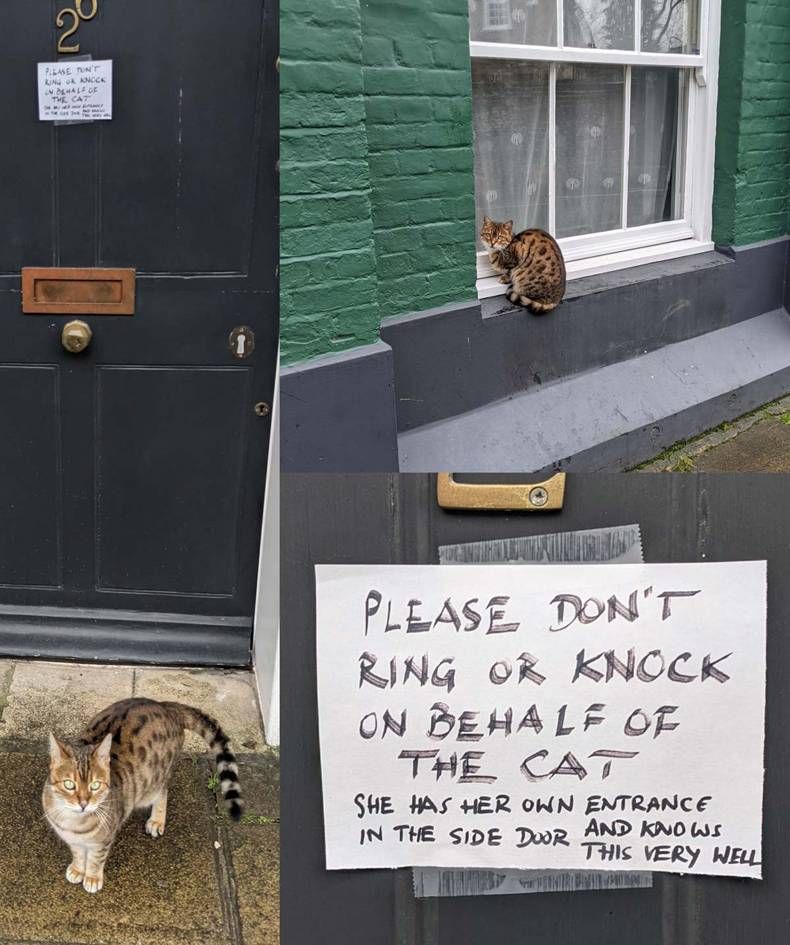 20
PLEASE DON'T
RING OR KNOCK
ON BEHALF OF
THE CAT
SHE HAS HER OWN ENTRANCE
IN THE SIDE DOOR AND KNOWS
THIS VERY WELL
PLEASE DON'T
RING OR KNOCK
ON BEHALF OF
THE CAT
SHE HAS HER OWN ENTRANCE
IN THE SIDE DOOR AND KNOWS
THIS VERY WELL